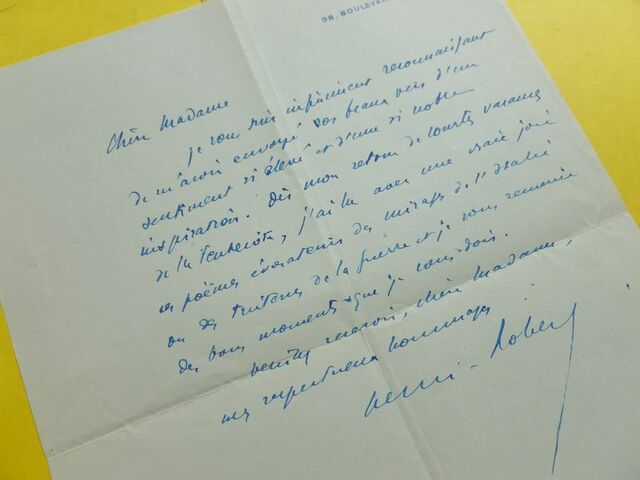 98, BOULEVAR
Chère Madame
je vous suis infiniment reconnaissant
de m'avoir envoyé vos beaux vers d'un
sentiment si élevé et d'une si noble
inspiration. Dès mon retour de courtes vacances
de la Pentecôte, j'ai lu avec une vraie joie
ces poèmes évocateurs des mirages de l'Italie
ou des tristesses de la guerre et je vous remercie
des bons moments que je vous dois.
Veuillez recevoir, chère Madame,
mes respectueux hommages
Henri-Robert